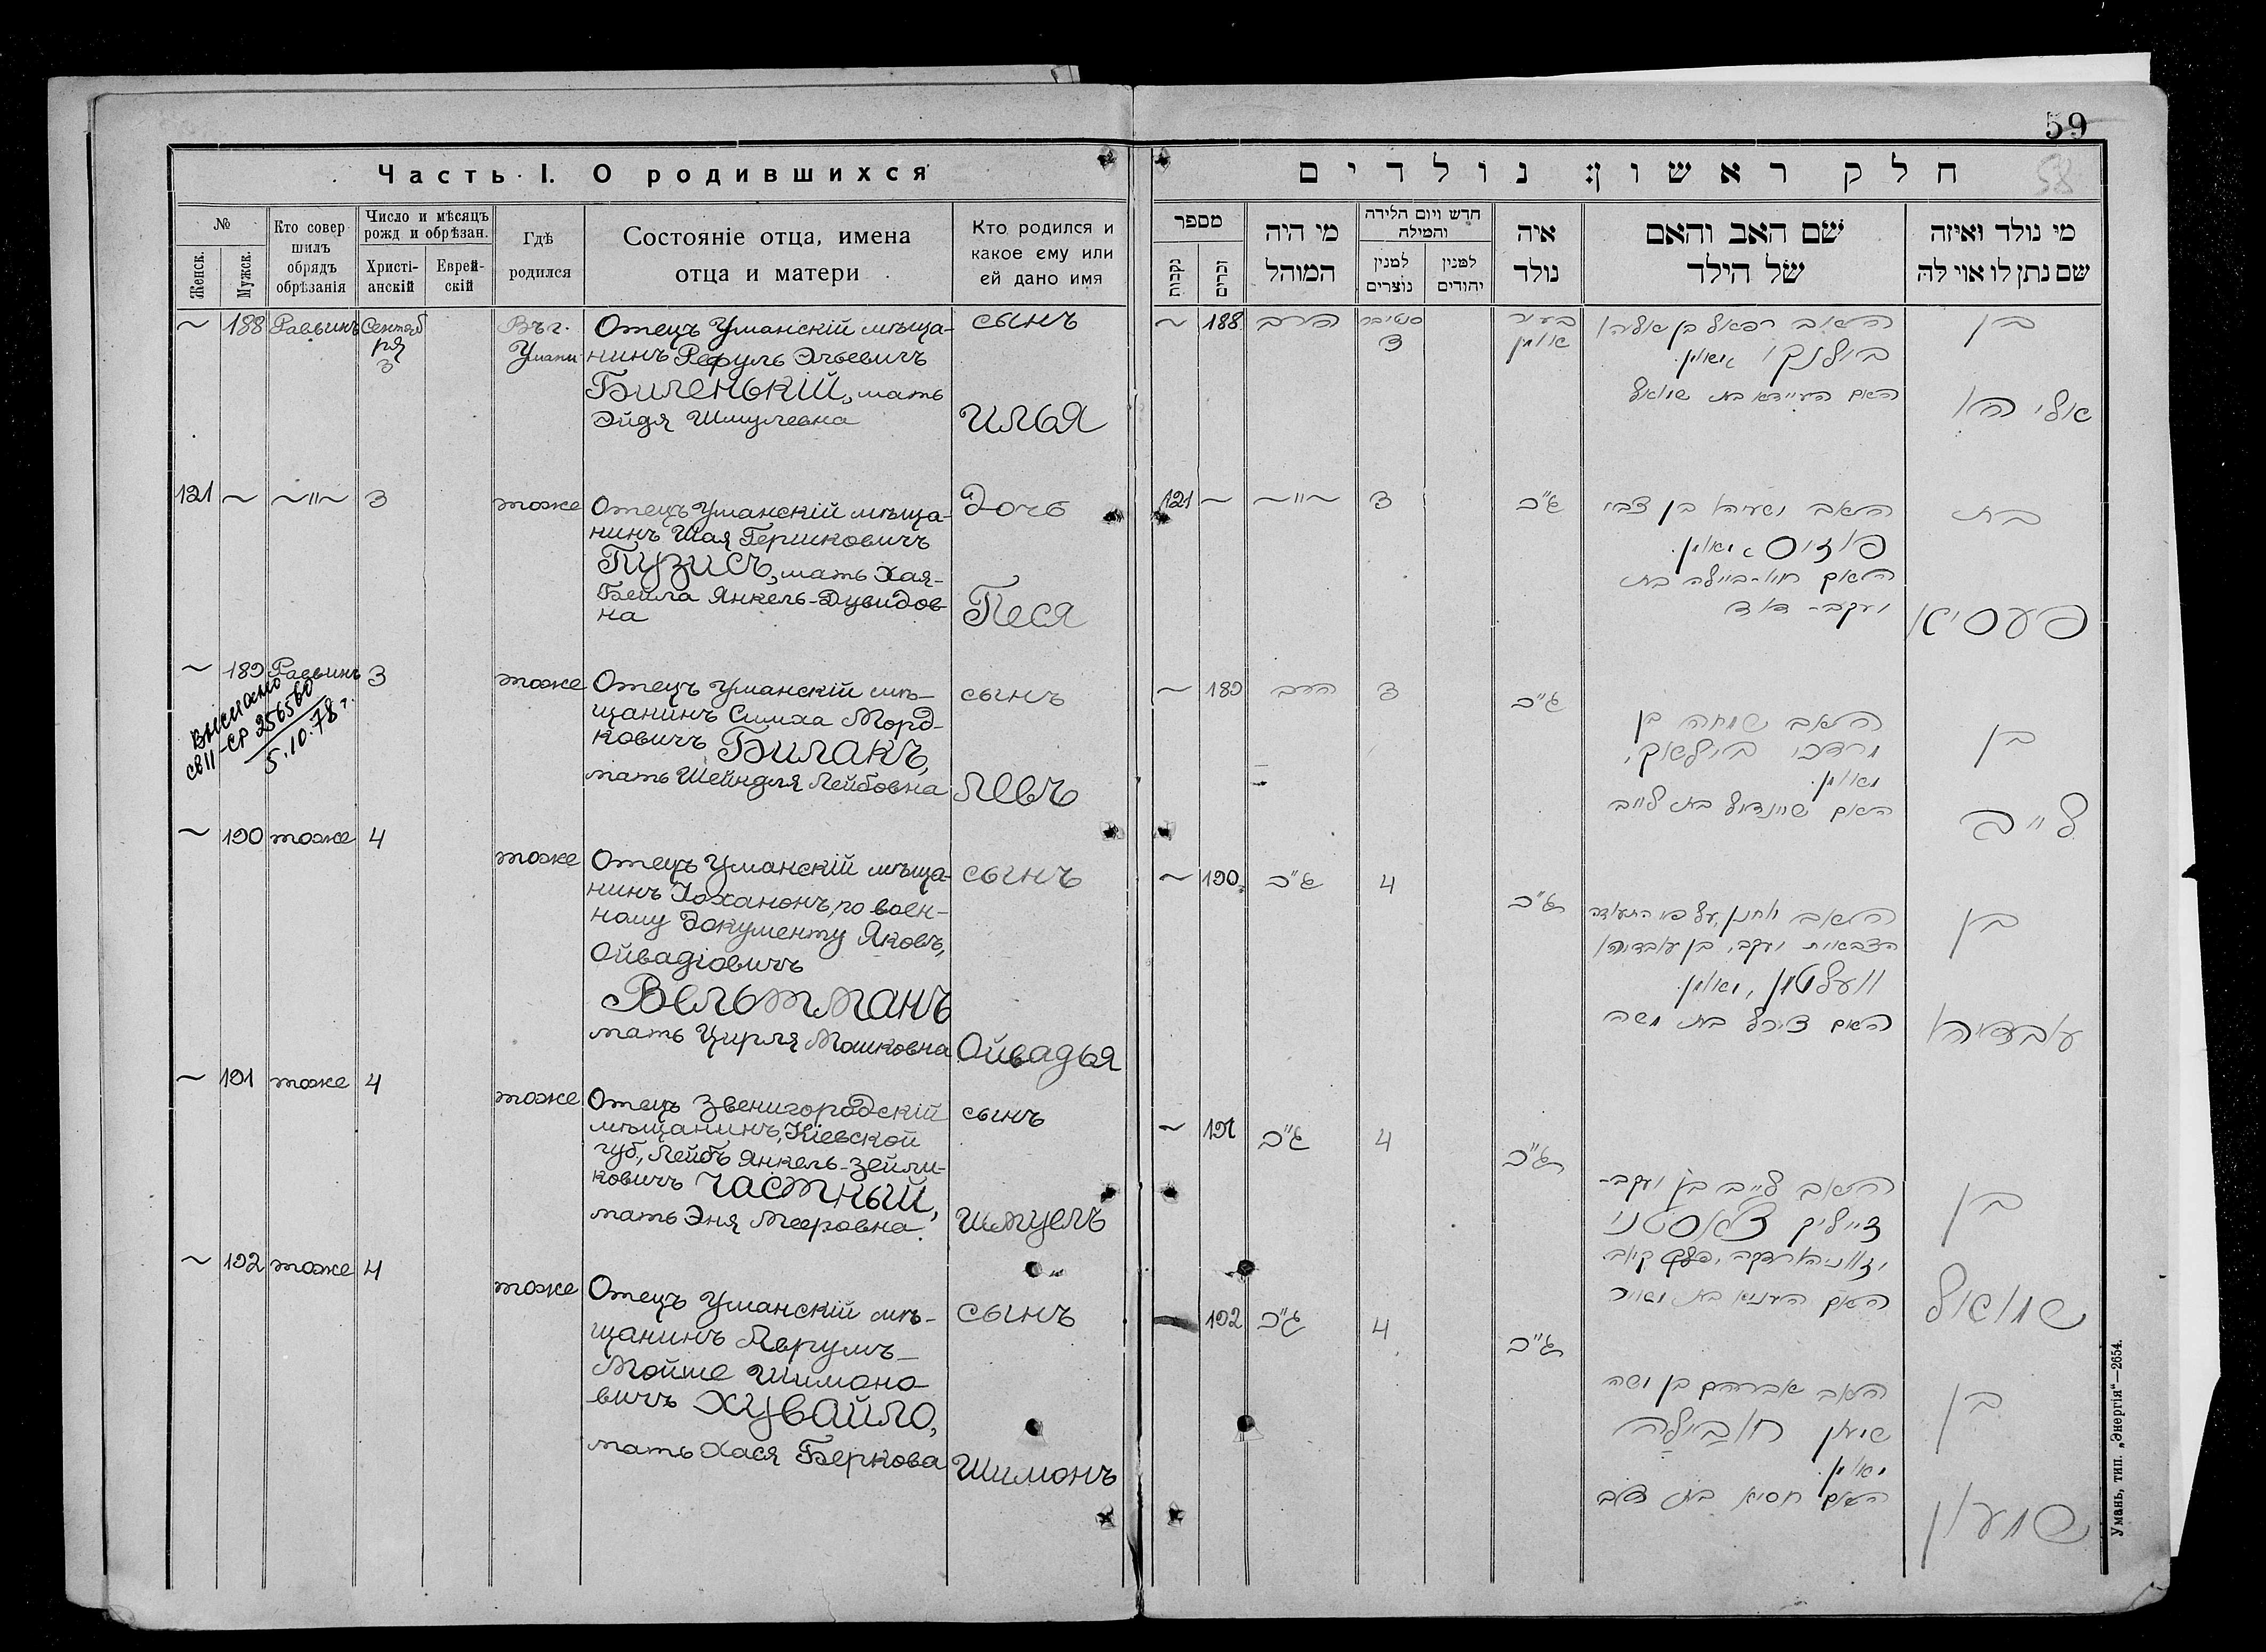 59
58
Часть I. О родившихся
№
Женск.
Мужск.
Кто совер
шилъ
обрядъ
обрѣзанія
Число и мѣсяцъ
рожд и обрѣзан.
Христі-
анскій
Еврей-
скій
Гдѣ
родился
Состояніе отца, имена
отца и матери
Кто родился и
какое ему или
ей дано имя
~ 188 Раввинъ Сентяб
ря
3
Въ г.
Умани
Отецъ Уманскій мѣща-
нинъ Рефуль Эльевичъ
Биленькій, мать
Эйдя Шмулевна
сынъ
Илья
121 ~ ~"~ 3
тоже
Отецъ Уманскій мѣща-
нинъ Шая Гершковичъ
Пузисъ, мать Хая-
Бейла Янкель-Дувидов-
на
Дочь
Песя
~ 189 Раввинъ 3
выслано
св II-СР 256560
5.10.78 г.
тоже
Отецъ Уманскій мѣ-
щанинъ Симха Морд-
ковичъ Билакъ,
мать Шейндля Лейбовна
сынъ
Левъ
~ 190 тоже 4
тоже
Отецъ Уманскій мѣща-
нинъ Іохананъ, по воен-
ному документу Яковъ,
Ойвадіовичъ
Вельтманъ
мать Цирля Мошковна
сынъ
Ойвадья
~ 191 тоже 4
тоже
Отецъ Звенигородскій
мѣщанинъ, Кіевской
губ., Лейбъ Янкель-Зейли-
ковичъ Частный,
мать Эня Мееровна.
сынъ
Шмуель
~ 192 тоже 4
тоже
Отецъ Уманскій мѣ-
щанинъ Аврумъ-
Мойше Шимоно-
вичъ Хувайло,
мать Хася Беркова
сынъ
Шимонъ
חלק ראשון: נולדים
מספר
נקבות
זכרים
מי היה
המוהל
חדש ויום הלידה
והמילה
למנין
נוצרים
למנין
יהודים
איה
נולד
שם האב והאם
של הילד
מי נולד ואיזה
שם נתן לו אוי לה
~ 188 הרב
3
בעיר
אומן
האב רפאל בן אליהו
בילנקי מאומן.
האם העיידא בת שמואל
בן
אליהו
121 ~ ~"~ 3
ג"כ
האב ישעיהו בן צבי
פוזיס מאומן.
האם חיה-ביילה בת
יעקב-דוד
בת
פעסיא
~ 189 הרב 3
ג"כ
האב שמחה בן
מרדכי בילאק,
מאומן.
האם שיינדיל בת לייב
בן
לייב
~ 190 ג"כ 4
ג"כ
האב יוחנן, על פי התעודה
הצבאית יעקב, בן עובדיהו
וועלטמן, מאומן.
האם צירל בת משה
בן
עובדיהו
~ 191 ג"כ 4
ג"כ
האב לייב בן יעקב-
זייליק צ'אסטני
האם העניא בת מאיר
בן
שמואל
192 ג"כ 4
ג"כ
האב אברהם בן משה
שמעון חובילה
מאומן.
האם חסיא בת דוב
בן
שמעון
Умань, тип. „Энергія“—2654.